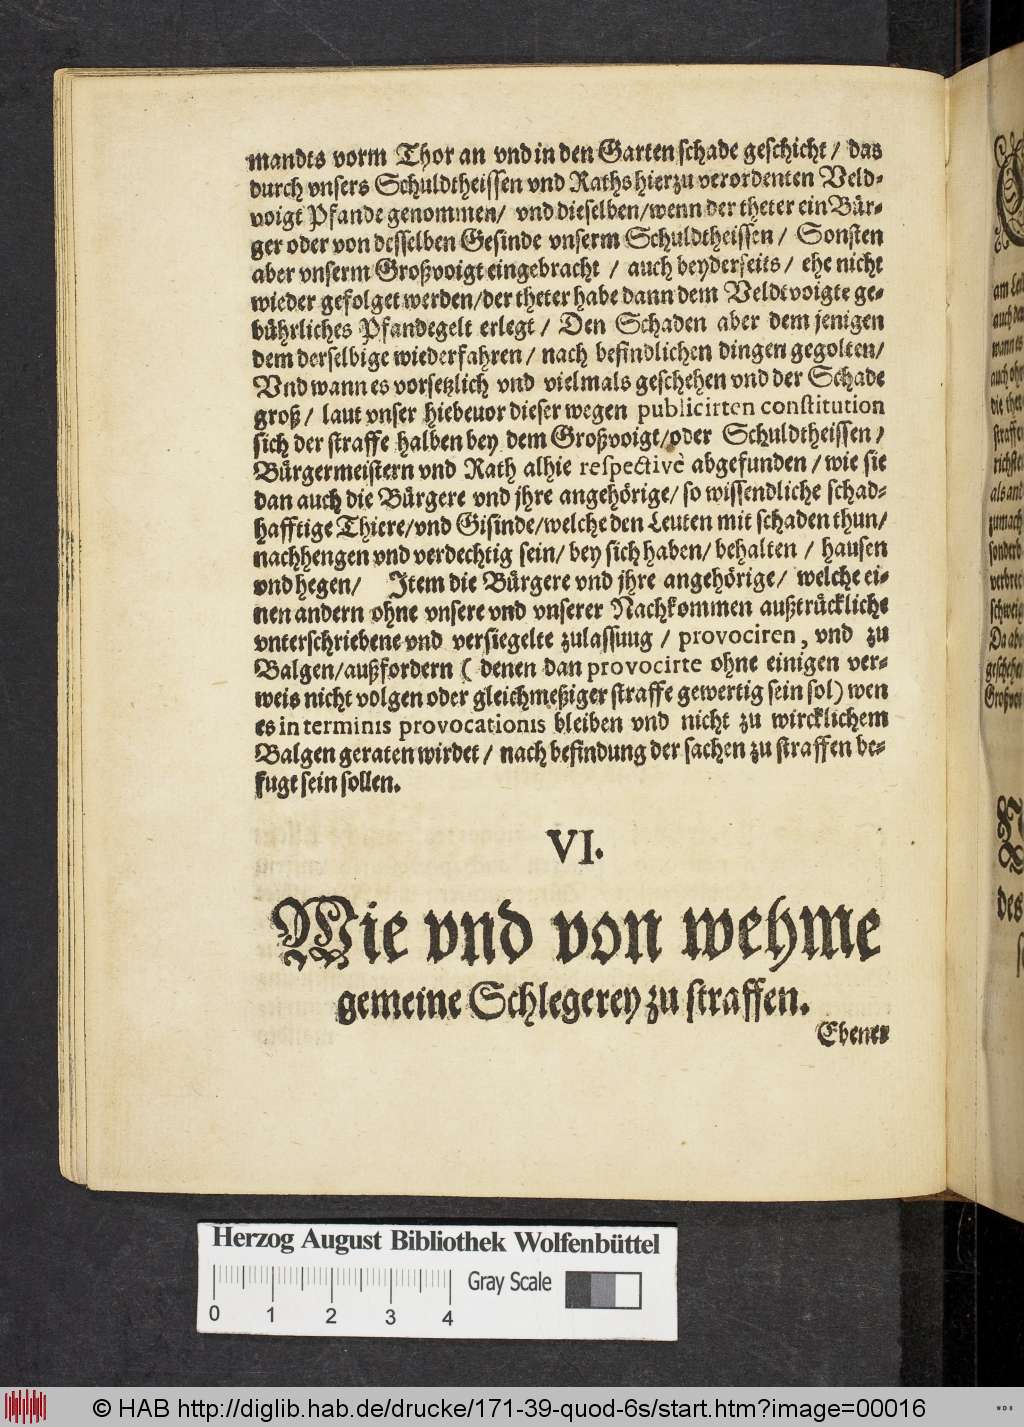 mandts vorm Thor an vnd in den Garten schade geschicht / das
durch vnsers Schuldtheissen vnd Raths hierzu verordenten Veld-
voigt Pfande genommen / vnd dieselben / wenn der theter ein Bür-
ger oder von desselben Gesinde vnserm Schuldtheissen / Sonsten
aber vnserm Großvoigt eingebracht / auch beyderseits / ehe nicht
wieder gefolget werden / der theter habe dann dem Veldtvoigte ge-
bührliches Pfandegelt erlegt / Den Schaden aber dem jenigen
dem derselbige wiederfahren / nach befindlichen dingen gegolten /
Vnd wann es vorsetzlich vnd vielmals geschehen vnd der Schade
groß / laut vnser hiebeuor dieser wegen publicirten constitution
sich der straffe halben bey dem Großvoigt / oder Schuldtheissen /
Bürgermeistern vnd Rath alhie respectivè abgefunden / wie sie
dan auch die Bürgere vnd jhre angehörige / so wissendliche schad-
hafftige Thiere / vnd Gisinde / welche den Leuten mit schaden thun /
nachhengen vnd verdechtig sein / bey sich haben / behalten / hausen
vnd hegen / Item die Bürgere vnd jhre angehörige / welche ei-
nen andern ohne vnsere vnd vnserer Nachkommen außtrückliche
vnterschriebene vnd versiegelte zulassuug / provociren, vnd zu
Balgen / außfordern ( denen dan provocirte ohne einigen ver-
weis nicht volgen oder gleichmeßiger straffe gewertig sein sol) wen
es in terminis provocationis bleiben vnd nicht zu wircklichem
Balgen geraten wirdet / nach befindung der sachen zu straffen be-
fugt sein sollen.
VI.
Wie vnd von wehme
gemeine Schlegerey zu straffen.
Ebener
am
auch
wann es
auch ohn
die
straffen
als and
zumach
sonderb
verbrec
schweig
Da abe
geschehe
Großvoi
des
Herzog August Bibliothek Wolfenbüttel
Gray Scale
0 1 2 3 4
© HAB http://diglib.hab.de/drucke/171-39-quod-6s/start.htm?image=00016